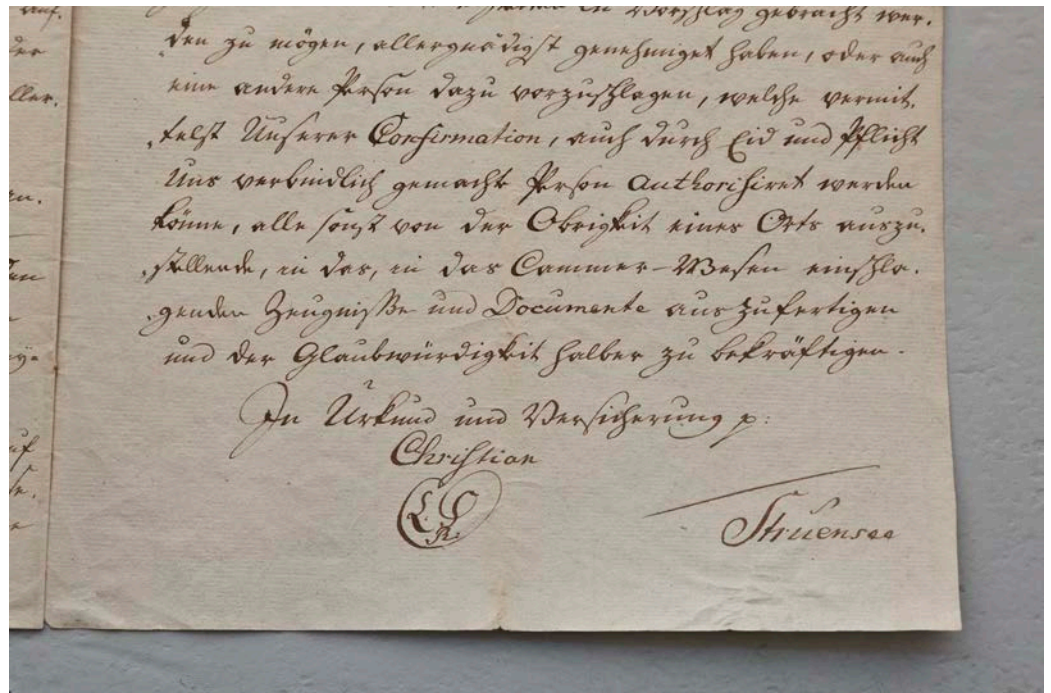 auf.
der
ller.
n.
den
y-
uf
se.
in Vorschlag gebracht wer.
den zu mögen, allergnädigst genehmiget haben, oder auch
eine andere Person dazu vorzuschlagen, welche vermit.
telst Unserer Confirmation, auch durch Eid und Pflicht
Uns verbindlich gemachte Person authorisiret werden
könne, alle sonst von der Obrigkeit eines Orts auszu.
stellende, in das, in das Cammer-Wesen einschla.
genden Zeugniße und Documente auszufertigen
und der Glaubwürdigkeit halber zu bekräftigen.
In Urkund und Versicherung p:
Christian
L.S.
R.
Struensee